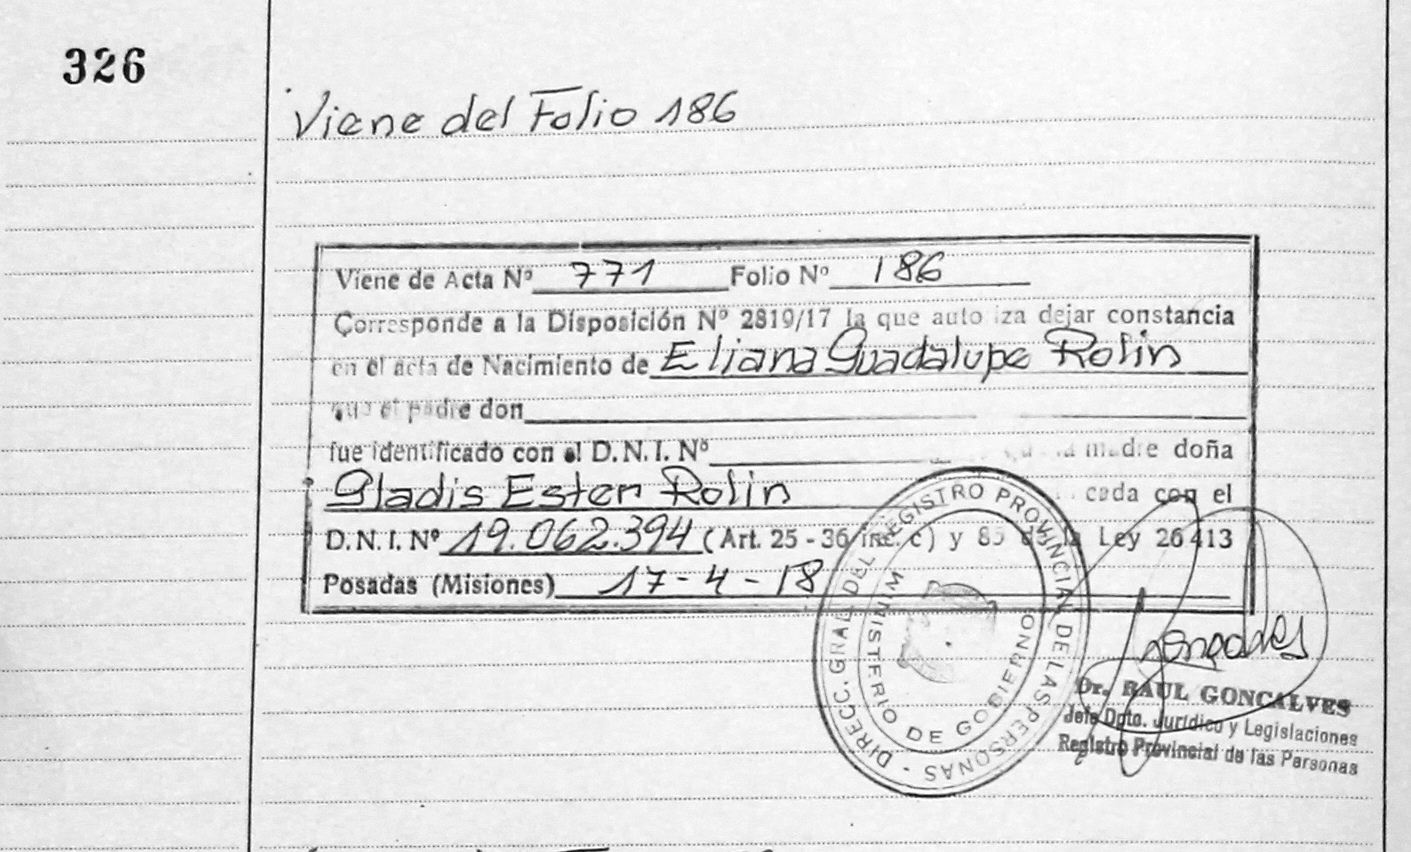 326
Viene del Folio 186
Viene de Acta Nº 771 Folio Nº 186
Corresponde a la Disposición Nº 2819/17 la que auto iza dejar constancia
en el acta de Nacimiento de Eliana Guadalupe Rolin
que el padre don
fue identificado con el D.N.I. Nº madre doña
Gladis Ester Rolin cada con el
D.N.I. Nº 19.062.394 (Art. 25 - 36 inc. c) y 85 de la Ley 26413
Posadas (Misiones) 17-4-18
DIRECC. GRAL. DEL REGISTRO PROVINCIAL DE LAS PERSONAS -
MINISTERIO DE GOBIERNO
Dr. RAUL GONCALVES
Jefe Dpto. Jurídico y Legislaciones
Registro Provincial de las Personas